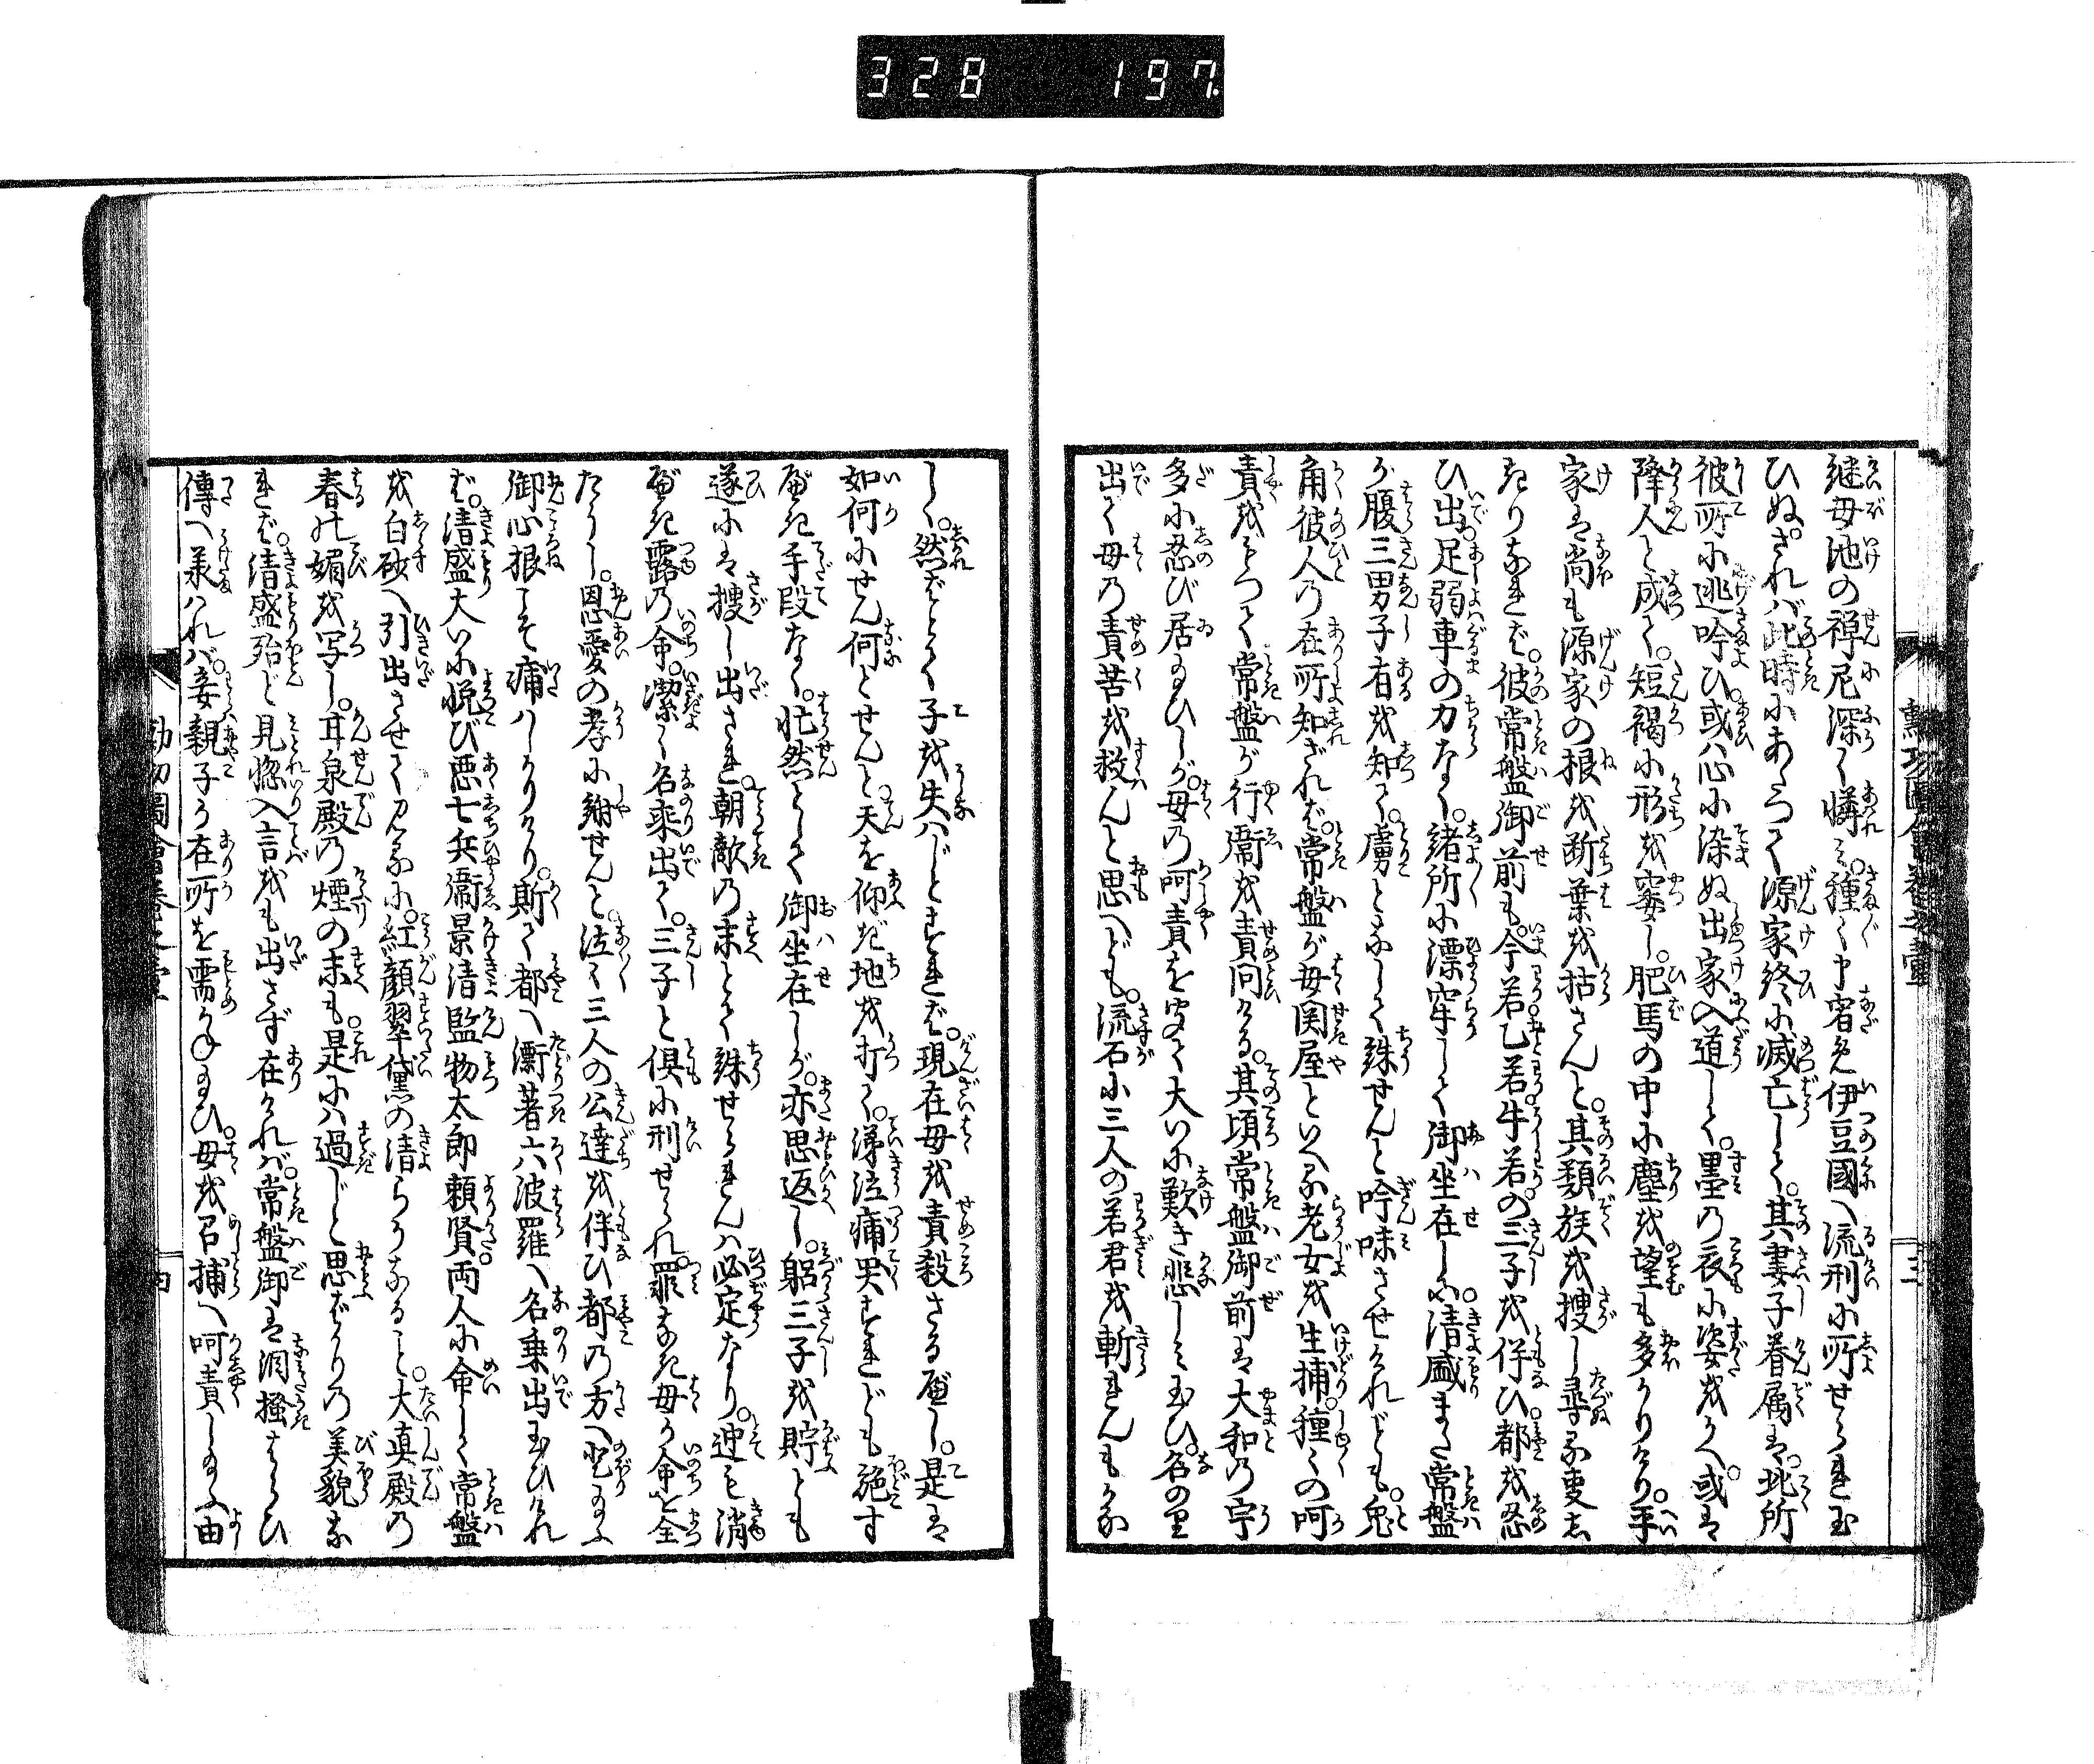 328 197.
継母池の禅尼深く憐み。種〻申宥免伊豆國へ流刑に所せられ玉
ひぬ。されバ此時にあたつて源家終に滅亡して。其妻子眷属は。此所
彼所に逃吟ひ。或ハ心に染ぬ出家入道して。墨の衣に姿をかへ。或は
降人と成て。短褐に形を窶し。肥馬の中に塵を望も多かりけり。平
家は尚も源家の根を断葉を枯さんと。其類族を捜し尋る事し
きりなれば。彼常盤御前も。今若乙若牛若の三子を伴ひ都を忍
ひ出。足弱車の力なく。諸所に漂牢して御坐在しに。清盛また常盤
が腹三男子有を知て。虜となして誅せんと吟味させけれども。兎
角彼人の在所知ざれば。常盤が母関屋といへる老女を生捕。種〻の呵
責をもつて常盤が行衛を責問ける。其頃常盤御前は大和の宇
多に忍び居給ひしが。母の呵責を聞て大いに歎き悲しみ玉ひ。名のり
出て母の責苦を救んと思へども。流石に三人の若君を斬れんもかな
し。然ばとて子を失ハじとすれば。現在母を責殺さる可し。是は
如何にせん何とせんと。天を仰ぎ地を打て。涕泣痛哭すれども絶す
べき手段なく。忙然として御坐在しが。亦思返し。躬三子を貯とも
遂には捜し出され。朝敵の末とて誅せられんハ必定なり。迚も消
べき露の命。潔く名乗出て。三子と倶に刑せられ。罪なき母の命を全
たうし。恩愛の孝に謝せんと。泣〻三人の公達を伴ひ都の方へ登給ふ
御心根こそ痛ハしかりけり。斯て都へ漸着六波羅へ名乗出玉ひけれ
ば。清盛大いに悦び悪七兵衛景清監物太郎頼賢両人に命して常盤
を白砂へ引出させて見るに。紅顔翠黛の清らかなること。大真殿の
春の媚を写し。甘泉殿の煙の末も是にハ過じと思ばかりの美貌な
れば。清盛殆ど見惚入言をも出さず在けれバ。常盤御は涙掻はらひ
傳へ承ハれバ。妾親子の在所を需かね給ひ。母を召捕へ呵責し給ふ由